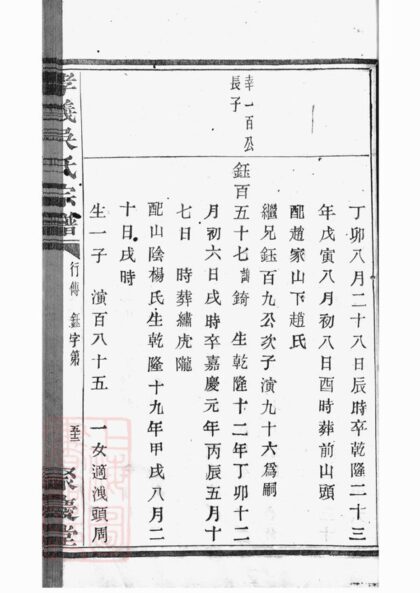 丁卯八月二十八日辰時卒乾隆二十三
年戊寅八月初八日酉時葬前山頭
配趙家山下趙氏
繼兄鈺百九公次子演九十六為嗣
幸一百公
長子
鈺百五十七諱錡 生乾隆十二年丁卯十二
月初六日戌時卒嘉慶元年丙辰五月十
七日 時葬繡虎隴
配山陰楊氏生乾隆十九年甲戌八月二
十日戌時
生一子 演百八十五 一女適溲頭周
孝義吳氏宗譜
行傳 鈺字第
聚慶堂